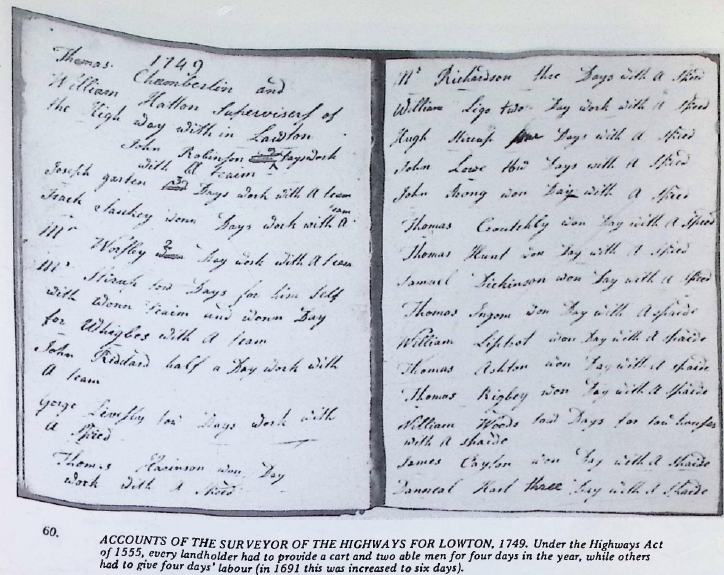 1749
Thomas Chamberlin and
William Hatton Supervisers of
the High way with in Lawton
John Robinson Dayswork
with A teaim
Joseph garten Days work with A team
Isack Sankey wonn Days work with A team
Mr Worsley Day work with A team
Mr tow Days for him Self
with wonn teaim and wonn Day
for with A team
John Riddard half a Day work with
A team
Gorge tow Days work with
A Speed
Thomas Harinson won Day
work with A Speed
Mr Richardson thre Days with A Speed
William Ligo two Day work with A Speed
Hugh Stirup Days with A Speed
John Lowe tow Days with A Speed
John won Day with A Speed
Thomas Croutchly won Day with A Speed
Thomas Hunt won Day with A Speed
Samuel Dickinson won Day with A Speed
Thomas Ingom won Day with A Spaide
William won Day with A Spaide
Thomas Ashton won Day with A Spaide
Thomas Rigbey won Day with A Spaide
William Woods tow Days for tow houses
with A Spaide
James Cayton won Day with A Spaide
Hart three Day with A Spaide
60.
ACCOUNTS OF THE SURVEYOR OF THE HIGHWAYS FOR LOWTON, 1749. Under the Highways Act
of 1555, every landholder had to provide a cart and two able men for four days in the year, while others
had to give four days' labour (in 1691 this was increased to six days).